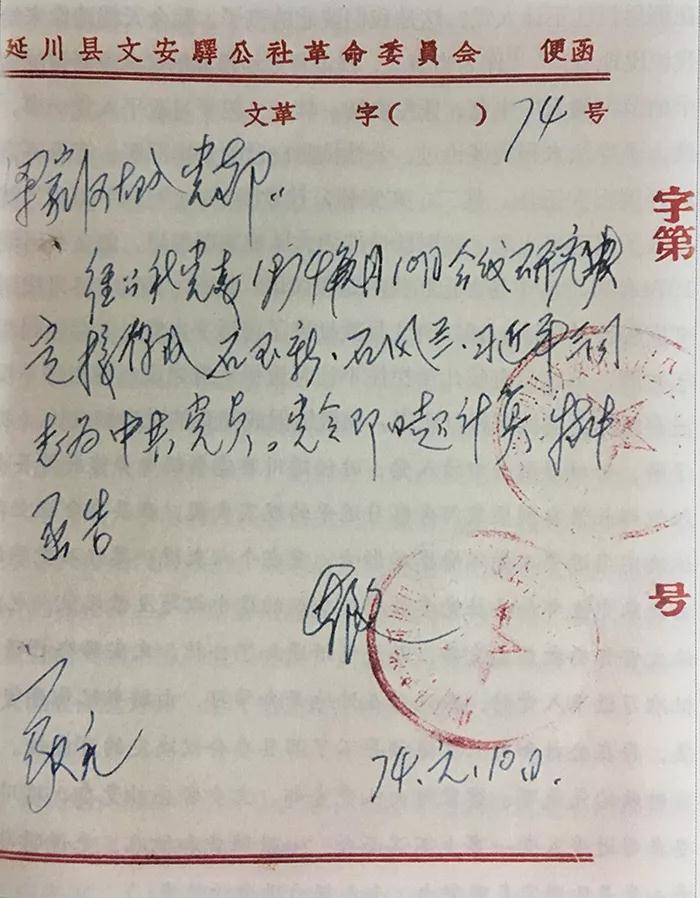 延川县文安驛公社革命委員会 便函
文革 字( )74号
梁家河大队党支部：
经公社党委1974年元月10日会议研究决
定接收 石玉新、石风兰、习近平三同
志为中共党员。党令即日起计算，特此
函告
74.元.10日.
字第
号